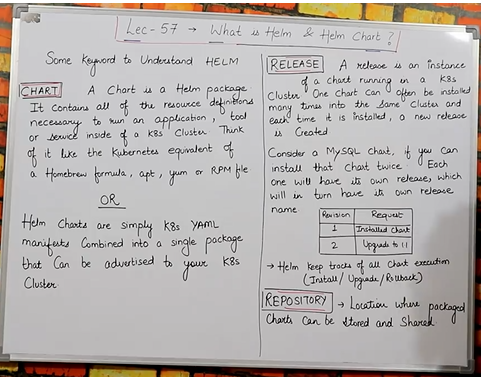 Lec-57 → What is Helm & Helm Chart?
Some Keyword to Understand HELM
CHART A Chart is a Helm package
It contains all of the resource definitions
necessary to run an application, tool
or service inside of a K8s Cluster. Think
of it like the Kubernetes equivalent of
a Homebrew formula, apt, yum or RPM file
OR
Helm Charts are simply K8s YAML
manifests Combined into a single package
that Can be advertised to your K8s
Cluster
RELEASE A release is an instance
of a chart running in a K8s
Cluster One Chart Can often be installed
many times into the Same Cluster and
each time it is installed, a new release
is Created
Consider a MySQL chart, if you Can
install that Chart twice. Each
one will have its own release, which
will in turn have its own release
name
Revision Request
1 Installed Chart
2 Upgrade to 1.1
→ Helm keep tracks of all Chart execution
(Install/Upgrade/Rollback)
REPOSITORY → Location where packaged
Charts Can be Stored and Shared